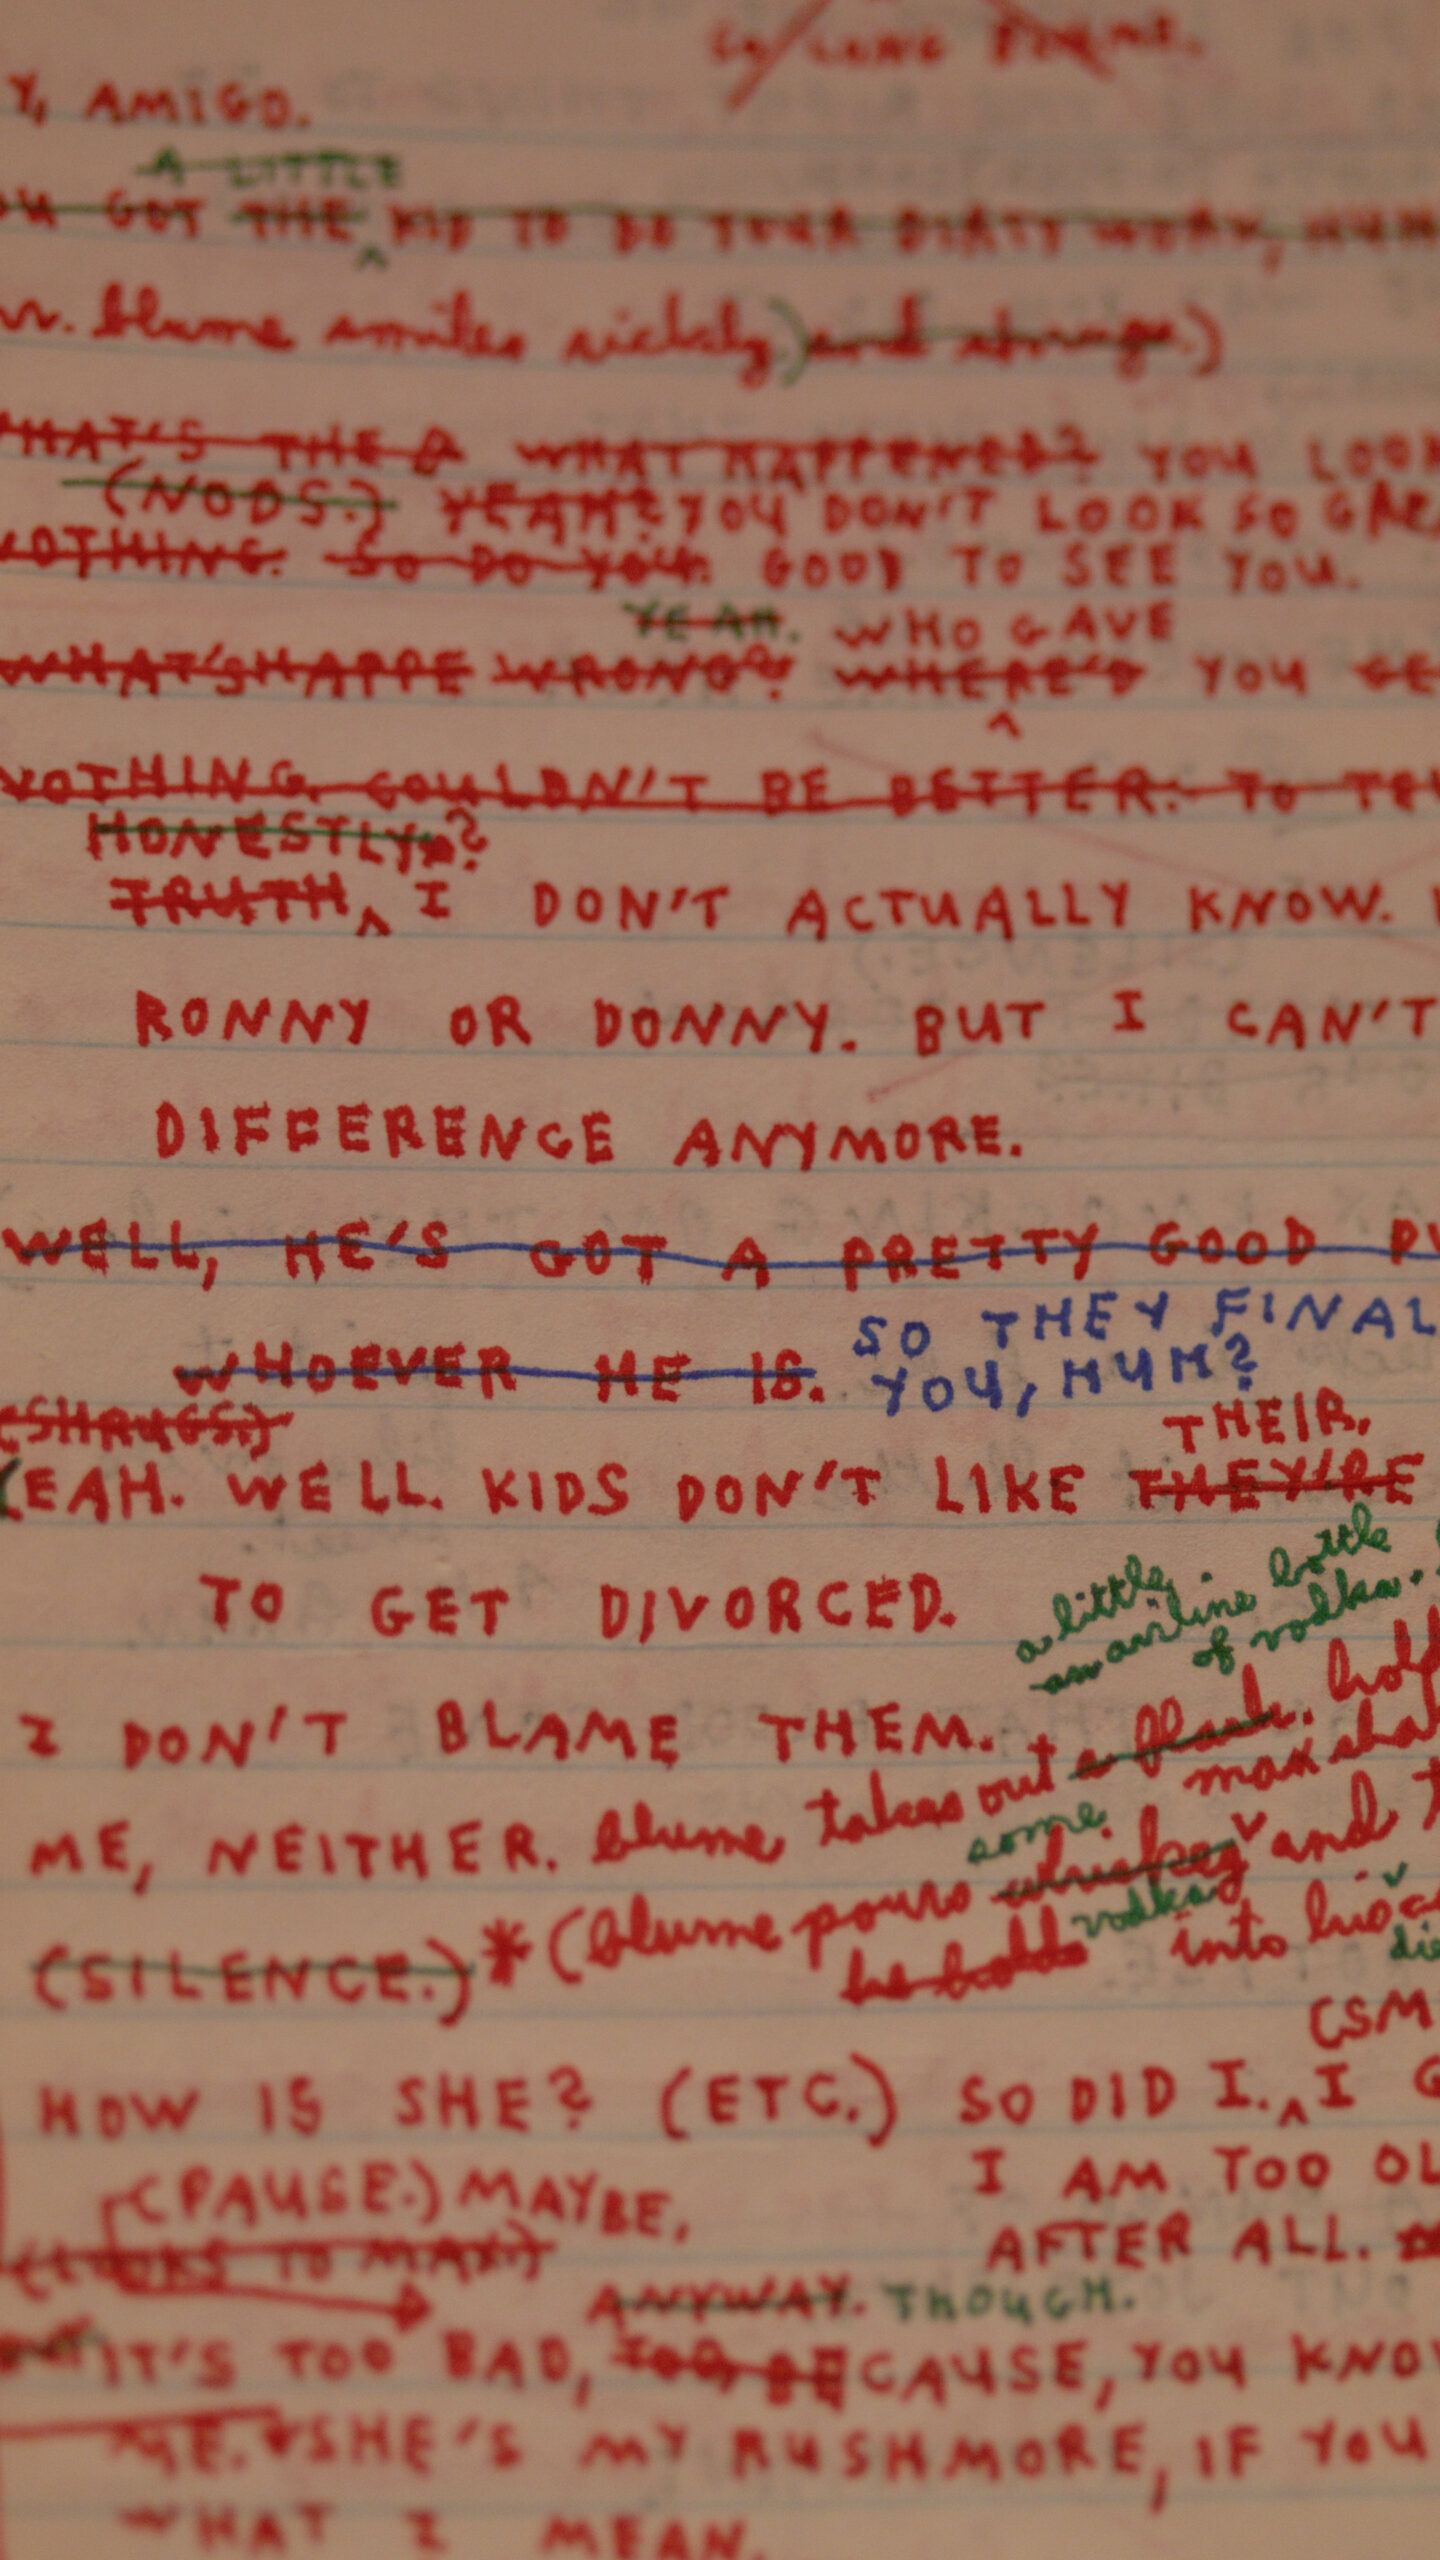 SO LONG
Y, AMIGO.
A LITTLE
OU GOT THE KID TO DO YOUR DIRTY WORK, HUH
r. blume smiles sickly.) and shrugs.)
WHAT'S THE WHAT HAPPENED? YOU LOOK
(NODS.) YEAH? YOU DON'T LOOK SO GRE
NOTHING. SO DO YOU. GOOD TO SEE YOU.
YEAH. WHO GAVE
WHAT'S HAPPE WRONG? WHERE'D YOU GE
NOTHING. COULDN'T BE BETTER. TO TE
HONESTLY?
TRUTH, I DON'T ACTUALLY KNOW.
RONNY OR DONNY. BUT I CAN'T
DIFFERENCE ANYMORE.
WELL, HE'S GOT A PRETTY GOOD PU
WHOEVER HE IS. SO THEY FINAL
YOU, HUH?
(SHRUGS.)
THEIR
YEAH. WELL. KIDS DON'T LIKE THEY'RE
TO GET DIVORCED.
a little
an airline bottle
of vodka.
I DON'T BLAME THEM.
ME, NEITHER. blume takes out a flask. hold
max sha
some
(SILENCE.) * (blume pours whiskey and t
he holds vodka into his
die
(SM
HOW IS SHE? (ETC.) SO DID I. I G
(PAUSE.) MAYBE, I AM TOO OL
(LOOKS TO MAX.) AFTER ALL.
ANYWAY. THOUGH.
IT'S TOO BAD, TOO, BECAUSE, YOU KNOW
ME. SHE'S MY RUSHMORE, IF YOU
WHAT I MEAN.